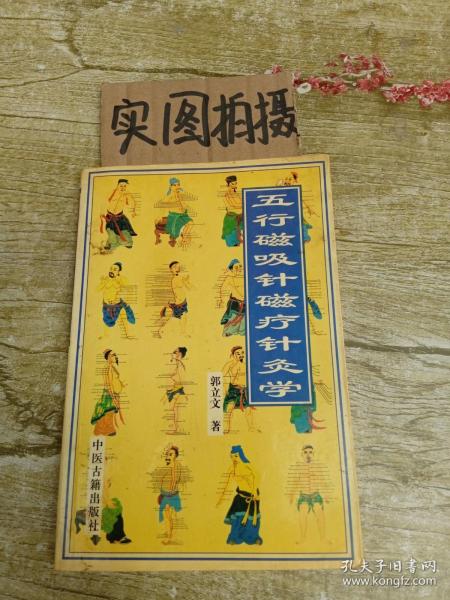 实图拍摄
五行磁吸针磁疗针灸学
郭立文 著
中医古籍出版社
孔夫子旧书网
www.kongfz.com